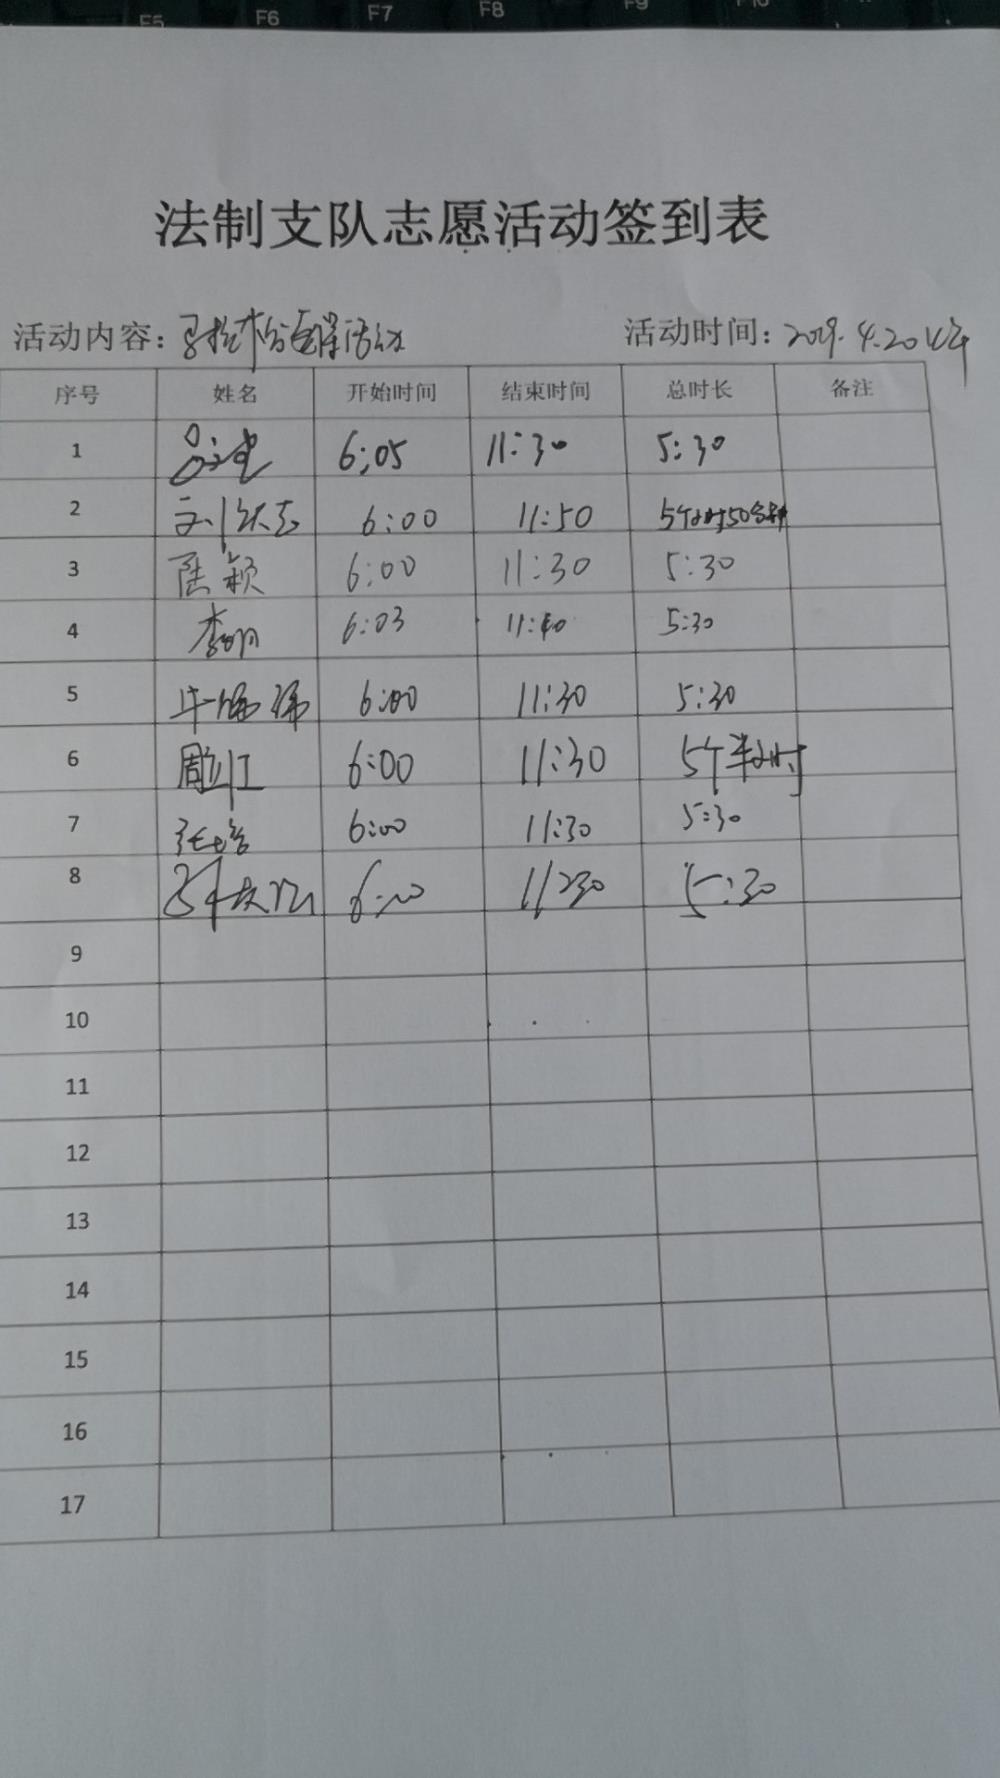 F5 F6 F7 F8 F9 F10
法制支队志愿活动签到表
活动内容：马拉松 活动 活动时间：2019.4.20上午
序号 姓名 开始时间 结束时间 总时长 备注
1 6:05 11:30 5:30
2 6:00 11:50 5个小时50分钟
3 陈颖 6:00 11:30 5:30
4 李明 6:03 11:40 5:30
5 6:00 11:30 5:30
6 周江 6:00 11:30 5个半小时
7 6:00 11:30 5:30
8 6:00 11:30 5:30
9
10
11
12
13
14
15
16
17